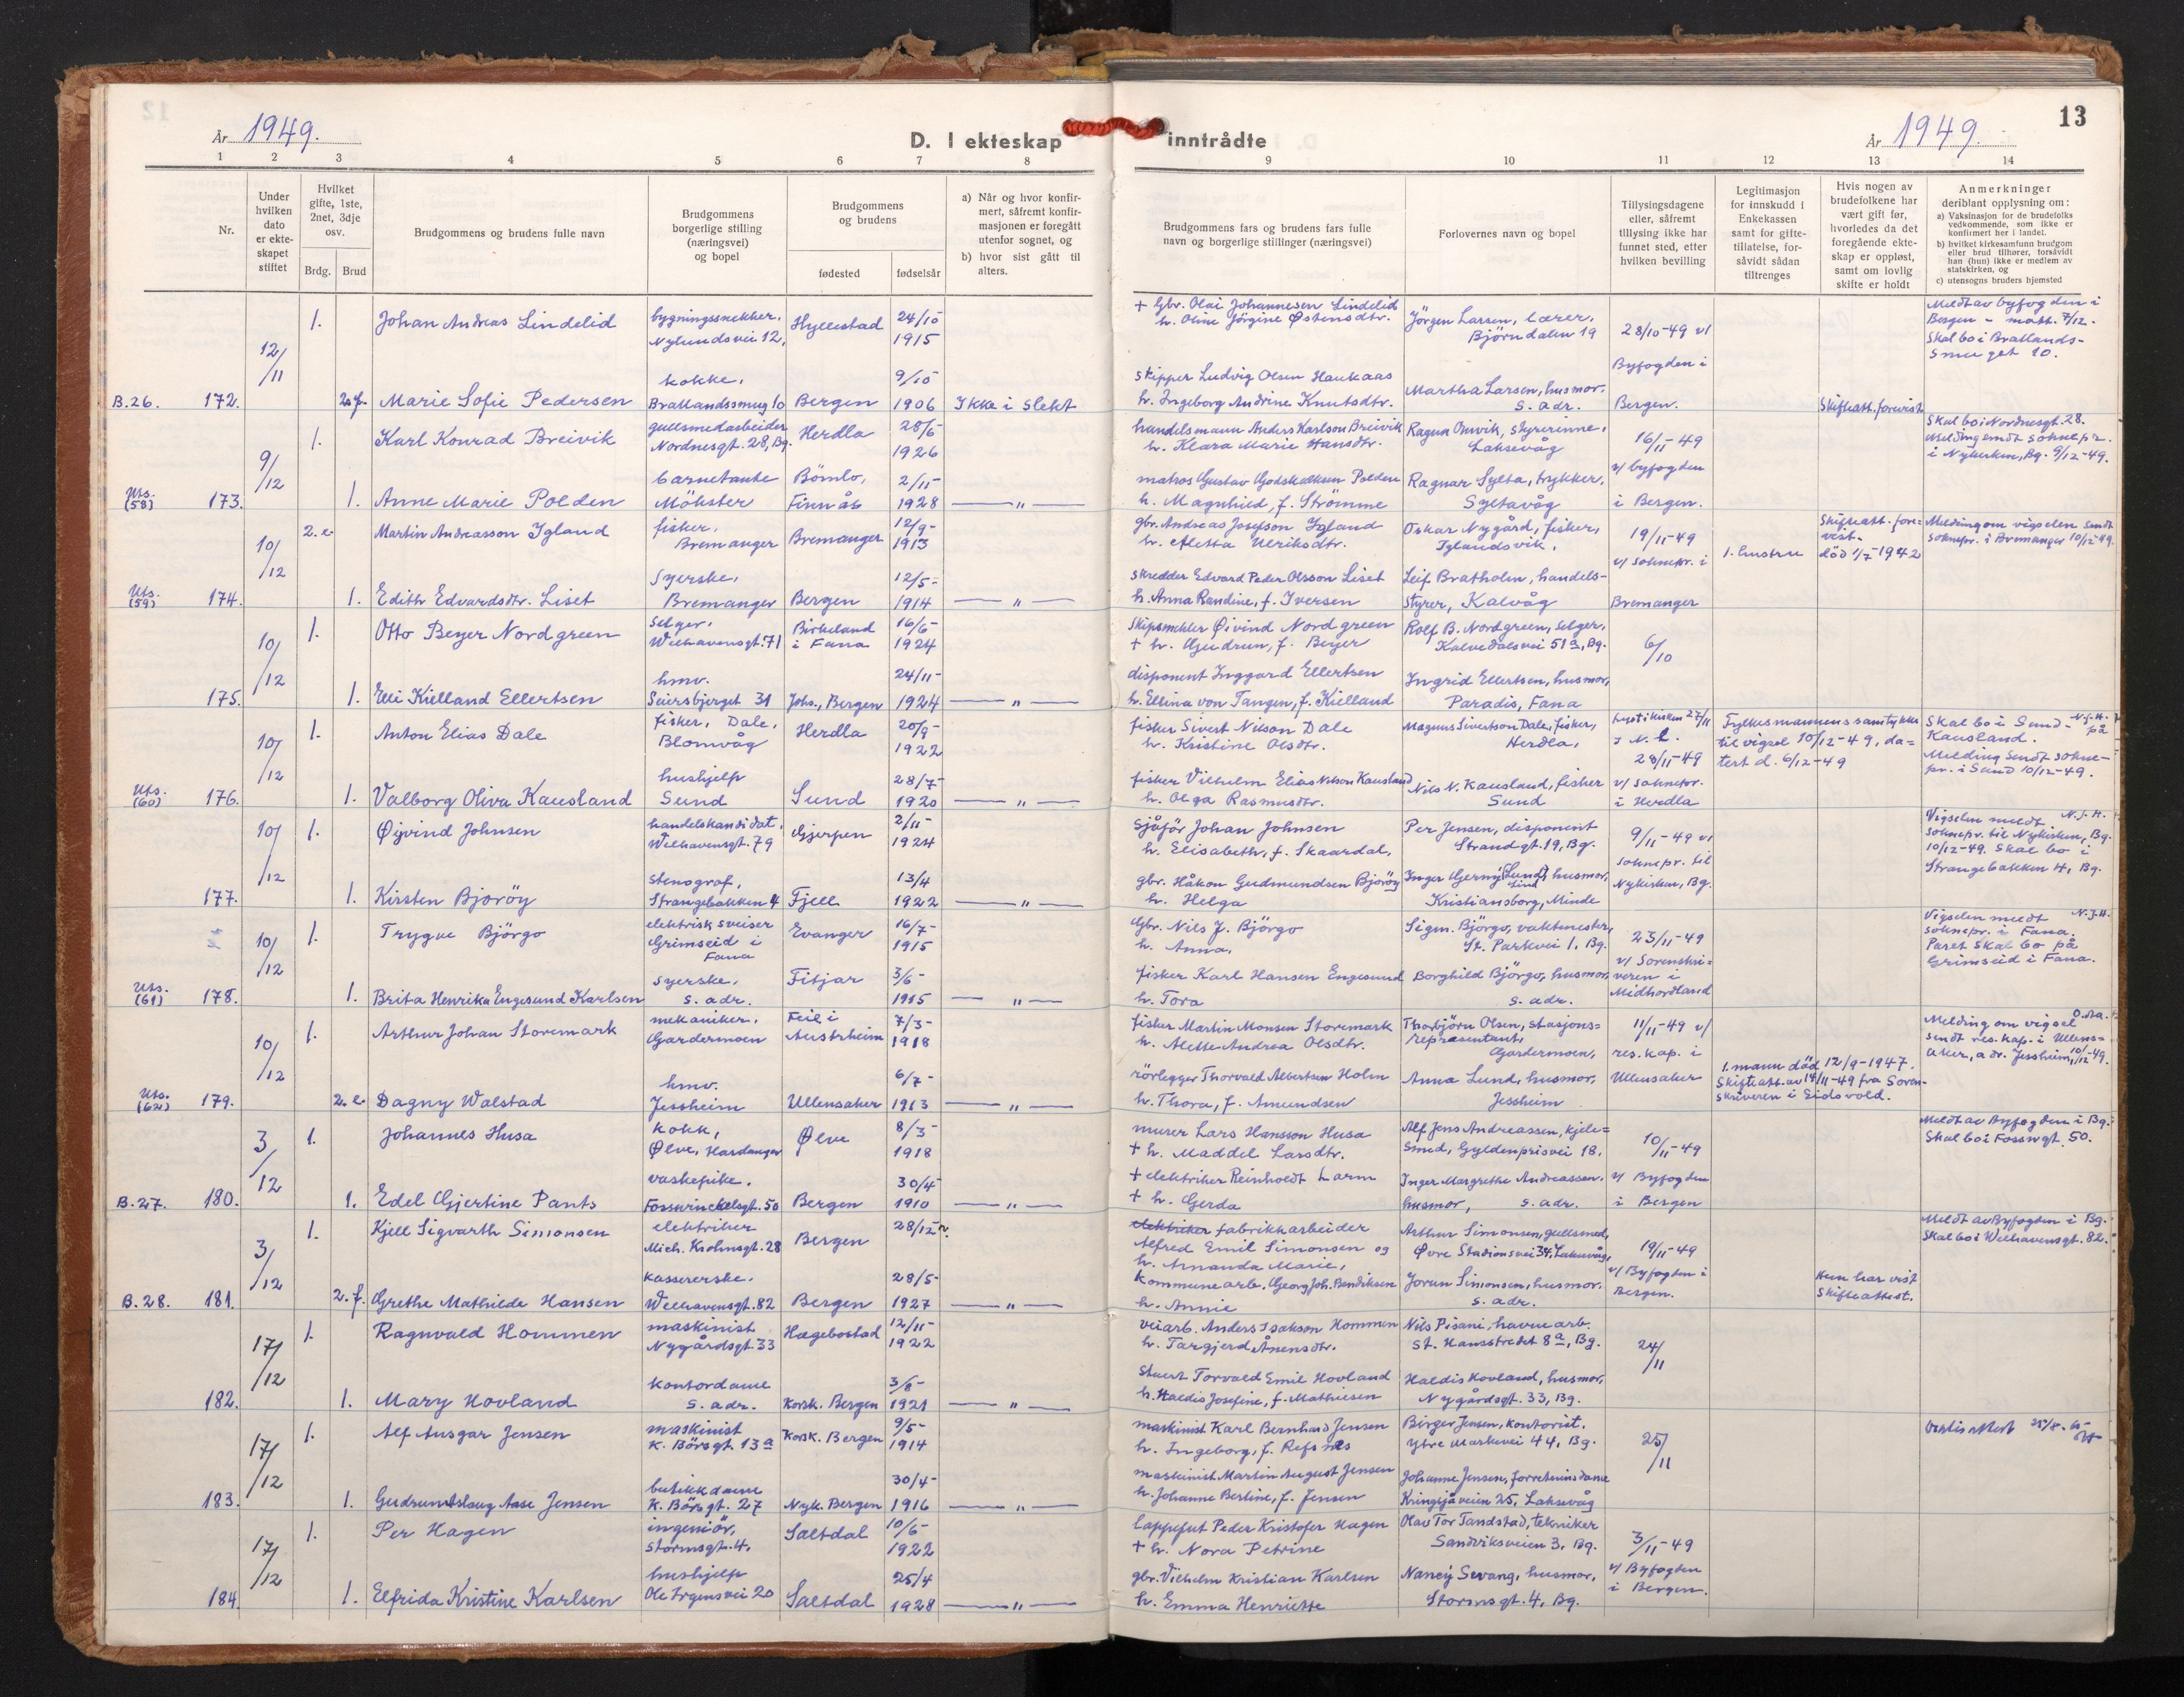 År 1949.
D. I ekteskap
1 2 3 4 5 6 7 8
Nr.
Under hvilken dato er ekteskapet stiftet
Hvilket gifte, 1ste, 2net, 3dje osv.
Brdg. Brud
Brudgommens og brudens fulle navn
Brudgommens borgerlige stilling (næringsvei) og bopel
Brudgommens og brudens
fødested fødselsår
a) Når og hvor konfirmert, såfremt konfirmasjonen er foregått utenfor sognet, og
b) hvor sist gått til alters.
12/11 1. Johan Andreas Lindelid bygningssnekker, Nylundsvei 12, Hyllestad 24/10 1915
B.26. 172. 2.f. Marie Sofie Pedersen kokke, Bratlandssmug 10 Bergen 9/10 1906 Ikke i slekt
9/12 1. Karl Konrad Breivik gullsmedarbeider Nordnesgt. 28, Bg. Herdla 28/6 1926
Uts. (58) 173. 1. Anne Marie Polden barnetante Mökster Bömlo, Finnås 2/11- 1928 — " —
10/12 2.e. Martin Andreasson Igland fisker, Bremanger Bremanger 12/9- 1913
Uts. (59) 174. 1. Edith Edvardsdtr. Liset Syerske, Bremanger Bergen 12/5- 1914 — " —
10/12 1. Otto Beyer Nordgreen Selger, Welhavensgt. 71 Birkeland i Fana 16/6- 1924
175. 1. Elli Kielland Ellertsen hmv. Seiersbjerget 31 Johs., Bergen 24/11- 1924 — " —
10/12 1. Anton Elias Dale fisker, Dale, Blomvåg Herdla 20/9- 1922
Uts. (60) 176. 1. Valborg Oliva Kausland hushjelp Sund Sund 28/7- 1920 — " —
10/12 1. Øyvind Johnsen handelskandidat, Welhavensgt. 79 Gjerpen 2/11- 1924
177. 1. Kirsten Bjoröy stenograf, Strangebakken 4 Fjell 13/4 1922 — " —
10/12 1. Trygve Björgo elektrisk sveiser Grimseid i Fana Evanger 16/7- 1915
Uts. (61) 178. 1. Brita Henrika Engesund Karlsen syerske, s. adr. Fitjar 3/6- 1915 — " —
10/12 1. Arthur Johan Storemark mekaniker, Gardermoen Feil i Austrheim 7/3- 1918
Uts. (62) 179. 2.e. Dagny Walstad hmv. Jessheim Ullensaker 6/7- 1913 — " —
3/12 1. Johannes Husa kokk, Ølve, Hardanger Ølve 8/3- 1918
B.27. 180. 1. Edel Gjertine Pants vaskepike. Fosswinckelsgt. 50 Bergen 30/4- 1910 — " —
3/12 1. Kjell Sigvarth Simonsen elektriker Mich. Krohnsgt. 28 Bergen 28/12
B.28. 181. 2.f. Grethe Mathilde Hansen kassererske. Welhavensgt. 82 Bergen 28/5- 1927 — " —
17/12 1. Ragnvald Hommen maskinist Nygårdsgt. 33 Hægebostad 12/11- 1922
182. 1. Mary Hovland kontordame s. adr. Korsk. Bergen 3/8- 1921 — " —
17/12 1. Alf Ansgar Jensen maskinist K. Börsgt. 13 a Korsk. Bergen 9/5- 1914
183. 1. Gudrun Aslaug Aase Jensen butikkdame K. Börsgt. 27 Nyk. Bergen 30/4- 1916 — " —
17/12 1. Per Hagen ingeniör, Stormsgt. 4. Saltdal 10/6- 1922
184. 1. Elfrida Kristine Karlsen hushjelp Ole Irgensvei 20 Saltdal 25/4 1928 — " —
inntrådte
År 1949.
13
9 10 11 12 13 14
Brudgommens fars og brudens fars fulle navn og borgerlige stillinger (næringsvei)
Forlovernes navn og bopel
Tillysingsdagene eller, såfremt tillysing ikke har funnet sted, etter hvilken bevilling
Legitimasjon for innskudd i Enkekassen samt for giftetillatelse, forsåvidt sådan tiltrenges
Hvis nogen av brudefolkene har vært gift før, hvorledes da det foregående ekteskap er oppløst, samt om lovlig skifte er holdt
Anmerkninger deriblant opplysning om:
a) Vaksinasjon for de brudefolks vedkommende, som ikke er konfirmert her i landet.
b) hvilket kirkesamfunn brudgom eller brud tilhører, forsåvidt han (hun) ikke er medlem av statskirken, og
c) utensogns bruders hjemsted
+ Gbr. Olai Johannesen Lindelid h. Oline Jörgine Østensdtr. Jörgen Larsen, lærer, Björndalen 19 28/10-49 v/ Byfogden i Bergen. Meldt av byfogden i Bergen - mott. 7/12. Skal bo i Bratlandssmuget 10.
Skipper Ludvig Olsen Haukaas h. Ingeborg Andrine Knutsdtr. Martha Larsen, husmor. s. adr. Skifteatt. forevist
handelsmann Anders Karlson Breivik h. Klara Marie Hansdtr. Ragna Onvik, styrerinne, Laksevåg 16/11-49 v/ byfogden i Bergen. Skal bo i Nordnesgt. 28. Melding sendt soknepr. i Nykirken, Bg. 9/12-49.
matros Gustav Godskalksen Polden h. Magnhild, f. Strömme Ragnar Sylta, trykker, Syltavåg
gbr. Andreas Josefson Igland h. Aletta Ulriksdtr. Oskar Nygård, fisker, Iglandsvik, 19/11-49 v/ soknepr. i Bremanger 1. hustru död 1/7-1942 Skifteatt. forevist. Melding om vigselen sendt soknepr. i Bremanger 10/12-49.
skredder Edvard Peder Olsson Liset h. Anna Randine, f. Iversen Leif Bratholm, handelsstyrer, Kalvåg
Skipsmekler Øivind Nordgreen + h. Gudrun, f. Beyer Rolf B. Nordgreen, selger, Kalvedalsvei 51 a, Bg. 6/10
disponent Inggard Ellertsen h. Ellina von Tangen, f. Kielland Ingrid Ellertsen, husmor, Paradis, Fana
fisker Sivert Nilson Dale h. Kristine Olsdtr. Magnus Sivertson Dale, fisker, Herdla, 28/11-49 v/ soknepr. i Herdla Fylkesmannens samtykke til vigsel 10/12-49, datert d. 6/12-49 Skal bo i Sund - på Kausland. N.J.H. Melding sendt soknepr. i Sund 10/12-49.
fisker Vilhelm Elias Nilson Kausland h. Olga Rasmusdtr. Nils N. Kausland, fisker Sund
Sjåför Johan Johnsen h. Elisabeth, f. Skaardal, Per Jensen, disponent Strandgt. 19, Bg. 9/11-49 v/ soknepr. til Nykirken, Bg. Vigselen meldt N.J.H. soknepr. til Nykirken, Bg. 10/12-49. Skal bo i Strangebakken 4, Bg.
gbr. Håkon Gudmundsen Bjoröy h. Helga Inger Gerny (Lund) Lind, husmor, Kristiansborg, Minde
Gbr. Nils J. Björgo h. Anna, Sigm. Björgo, vaktmester, St. Parkvei 1, Bg. 23/11-49 v/ Sorenskriveren i Midhordland Vigselen meldt N.J.H. soknepr. i Fana. Paret skal bo på Grimseid i Fana.
fisker Karl Hansen Engesund h. Tora Borghild Björgo, husmor, s. adr.
fisker Martin Monsen Storemark h. Alette Andrea Olsdtr. Thorbjörn Olsen, stasjonsrepræsentant, Gardermoen, 11/11-49 v/ res. kap. i Ullensaker Melding om vigsel sendt res. kap. i Ullensaker, adr. Jessheim, 10/12-49.
rörlegger Thorvald Albertsen Holm h. Thora, f. Amundsen Anna Lund, husmor, Jessheim 1. mann död 12/9-1947. Skifteatt. av 14/11-49 fra Sorenskriveren i Eidsvold.
murer Lars Hansson Husa + h. Maddel Larsdtr. Alf Jens Andreassen, kjelesmed, Gyldenprisvei 18. 10/11-49 v/ Byfogden i Bergen Meldt av Byfogden i Bg. Skal bo i Fosswgt. 50.
+ elektriker Reinholdt Larm + h. Gerda Inger Margrethe Andreassen, husmor, s. adr.
elektriker fabrikkarbeider Alfred Emil Simonsen og h. Amanda Marie, Arthur Simonsen, gullsmed, Øvre Stadionsvei 34, Laksevåg, 19/11-49 v/ Byfogden i Bergen. Meldt av Byfogden i Bg. Skal bo i Welhavensgt. 82.
Kommunearb. Georg Joh. Bendiksen h. Annie Jorun Simonsen, husmor. s. adr. Hun har vist skifteattest.
veiarb. Anders Isakson Hommen h. Targjerd Ånensdtr. Nils Pisani, havnearb. St. Hansstredet 8 a, Bg. 24/11
Stuert Torvald Emil Hovland h. Haldis Josefine, f. Mathiesen Haldis Hovland, husmor, Nygårdsgt. 33, Bg.
maskinist Karl Bernhard Jensen h. Ingeborg, f. Refsnes Birger Jensen, kontorist, Ytre Markevei 44, Bg. 25/11
maskinist Martin August Jensen h. Johanne Bertine, f. Jensen Johanne Jensen, forretninsdame Kringsjåveien 25, Laksevåg
Lappefut Peder Kristofer Hagen + h. Nora Petrine Olav Tor Tandstad, tekniker Sandviksveien 3, Bg. 3/11-49 v/ Byfogden i Bergen.
gbr. Vilhelm Kristian Karlsen h. Emma Henriette Nancy Sevang, husmor, Stormsgt. 4, Bg.